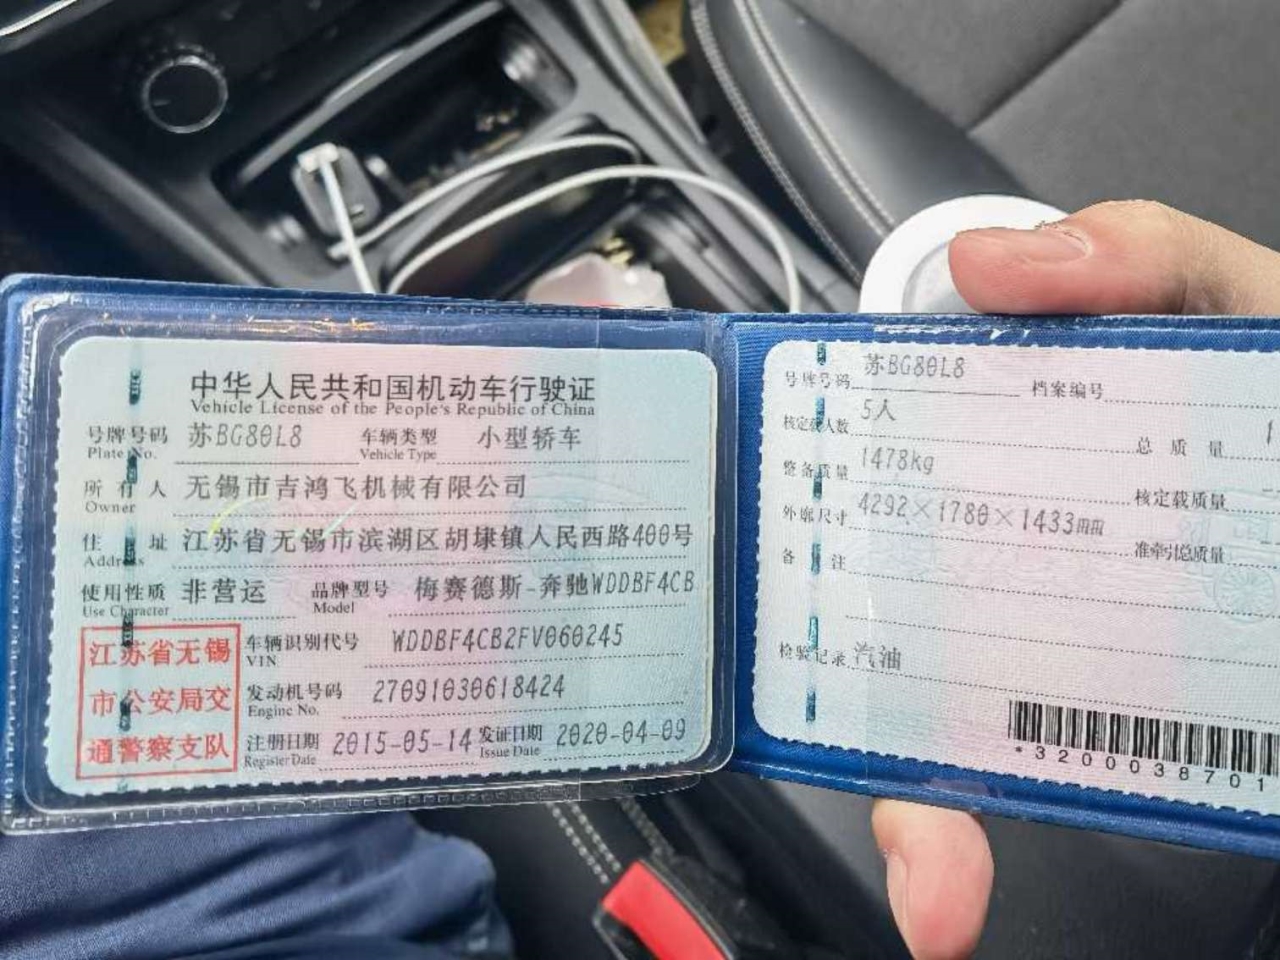 中华人民共和国机动车行驶证
Vehicle License of the People's Republic of China
号牌号码 苏BG80L8 车辆类型 小型轿车
Plate No. Vehicle Type
所有人 无锡市吉鸿飞机械有限公司
Owner
住址 江苏省无锡市滨湖区胡埭镇人民西路400号
Address
使用性质 非营运 品牌型号 梅赛德斯-奔驰WDDBF4CB
Use Character Model
江苏省无锡
市公安局交
通警察支队
车辆识别代号 WDDBF4CB2FV060245
VIN
发动机号码 27091030618424
Engine No.
注册日期 2015-05-14 发证日期 2020-04-09
Register Date Issue Date
号牌号码 苏BG80L8 档案编号
核定载人数 5人 总质量 1
整备质量 1478kg 核定载质量
外廓尺寸 4292×1780×1433mm 准牵引总质量
备注
检验记录 汽油
*3200038701